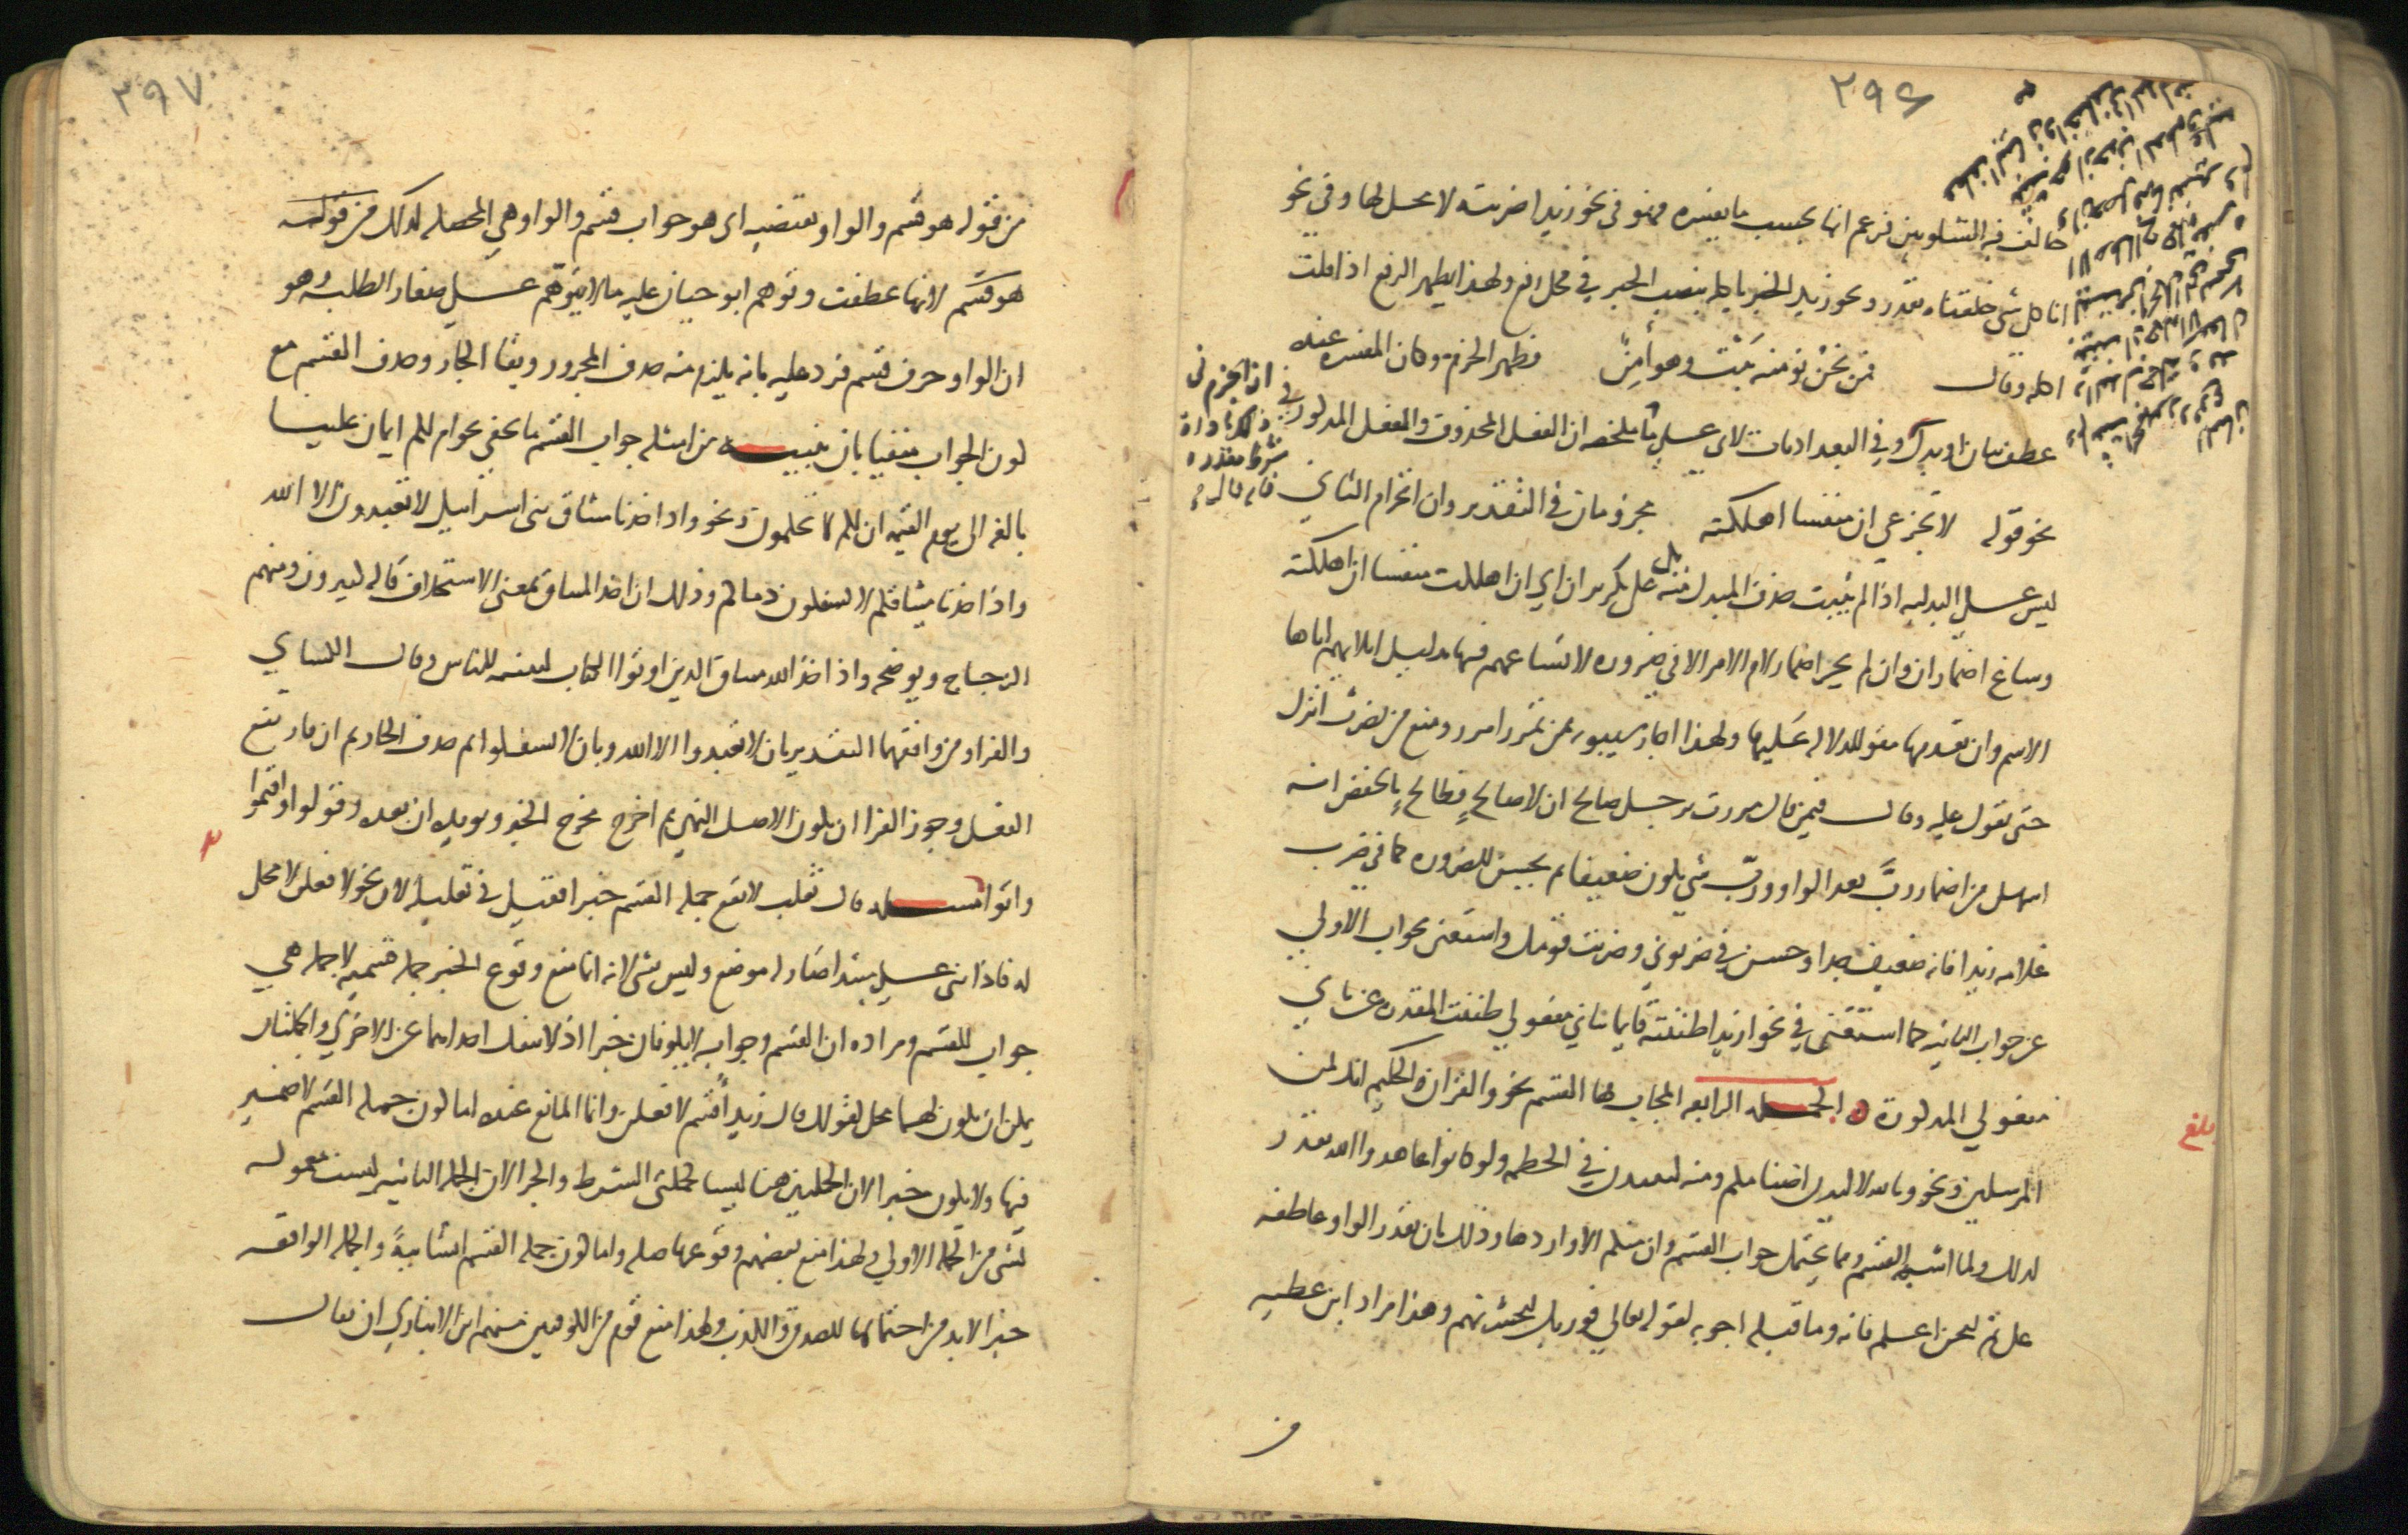 ٢٩٦
خالف فيه الشلوبين فزعم انها بحسب ما يفسره فهو في نحو زيدا ضربته لا محل لها وفي نحو
انا كل شي خلقناه بقدر ونحو زيد الخبز ياكله بنصب الخبز في محل رفع ولهذا يظهر الرفع اذا قلت
اكله وقال فمن نحن نومنه يَبِت وهو آمِنٌ فظهر الجزم وكان المفسره عنده
عطف بيان او بدل وفي البغداديات لابي علي ما ملخصه ان الفعل المحذوف والفعل المذكور في
نحو قوله لا تجزعي ان منفسا اهلكته مجزومان في التقدير وان انجزام الثاني
ليس علي البدليه اذ لم يثبت حذف المبدل منه بل علي تكرير ان اي ان اهلكت منفسا ان اهلكته
وساغ اضمار ان وان لم يجز اضمار لام الامر الا في ضروره لاتساعهم فيها بدليل ايلايهم اياها
الاسم وان تقدمها مقو للدلاله عليها ولهذا اجاز سيبويه بمن تمرر امرر ومنع من تضرب انزل
حتى تقول عليه وقال فيمن قال مررت برجل صالح ان لا صالحٍ فطالحٍ بالخفض انه
اسهل من اضمار رُبَّ بعد الواو ورُبّ شي يكون ضعيفا ثم يحسن للضروره كما في ضرب
غلامه زيدا فانه ضعيف جدا وحسن في ضربوني وضربت قومك واستغنى بجواب الاولي
عن جواب الثانيه كما استغنى في نحو ازيدا ظننته قايما بثاني مفعولي ظننت المقدره عن ثاني
مفعولي المذكورة الجمله الرابعه المجاب بها القسم نحو والقران الحكيم انك لمن
المرسلين ونحو وتالله لاكيدن اصنامكم ومنه لينبذن في الحطمه ولقد كانوا عاهدوا الله يقدر
لذلك ولما اشبهه القسم ومما يحتمل جواب القسم وان منكم الا واردها وذلك بان تقدر الواو عاطفه
على ثم لنحن اعلم فانه وما قبله اجوبه لقوله تعالي فوربك لنحشرنهم وهذا مراد ابن عطيه
من
ان الجزم في
ذلك باداة
شرط مقدره
فانه قال
بلغ
٢٩٧
من قوله هو قسم والواو يقتضيه اي هو جواب قسم والواو هي المحصله لذلك من قوله
هو قسم لانها عطفت وتوهم ابو حيان عليه ما لا يتوهم علي صغار الطلبه وهو
ان الواو حرف قسم فرد عليه بانه يلزم منه حذف المجرور وبقا الجار وحذف القسم مع
كون الجواب منفيا بان تنبيه من امثله جواب القسم ما يخفى نحو ام لكم ايمان علينا
بالغه الى يوم القيمه ان لكم لما تحكمون ونحو واذ اخذنا ميثاق بني اسراييل لا تعبدون الا الله
واذ اخذنا ميثاقكم لا تسفكون دماكم وذلك ان اخذ الميثاق بمعنى الاستحلاف قاله كثيرون ومنهم
الزجاج ويوضحه واذ اخذ الله ميثاق الذين اوتوا الكتاب لتبيننه للناس وقال الكساي
والفرا ومن وافقهما التقدير بان لا تعبدوا الا الله وبان لا تسفكوا ثم حذف الجار ثم ان فارتفع
الفعل وجوز الفرا ان يكون الاصل النهي ثم اخرج مخرج الخبر ويويده ان بعده وقولوا واقيموا
واتوا مسله قال ثعلب لا تقع جمله القسم خبرا فقيل في تعليله لان نحو لافعلن لا محل
له فاذا بني علي مبتدا صار له موضع وليس بشي لانه انما منع وقوع الخبر جمله قسميه لا جمله هي
جواب للقسم ومراده ان القسم وجوابه لا يكونان خبرا اذ لا تنفك احداهما عن الاخري والجملتان
يمكن ان يكون لهما محل كقولك قال زيد اُقسم لافعلن وانما المانع عنده اما كون جمله القسم لا ضمير
فيها ولا يكون خبرا لان الجملتين هنا ليستا كجملتى الشرط والجزا لان الجمله الثانيه ليست معموله
لشي من الجمله الاولي ولهذا منع بعضهم وقوعها صله واما كون جمله القسم انشاييةً والجمله الواقعه
خبرا لابد من احتمالها للصدق والكذب ولهذا منع قوم من الكوفيين منهم ابن الانباري ان يقال